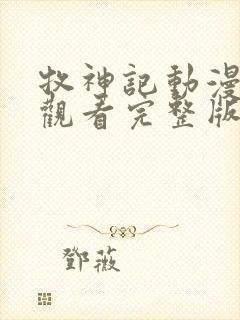 牧神記動漫
觀看完整版
鄧薇